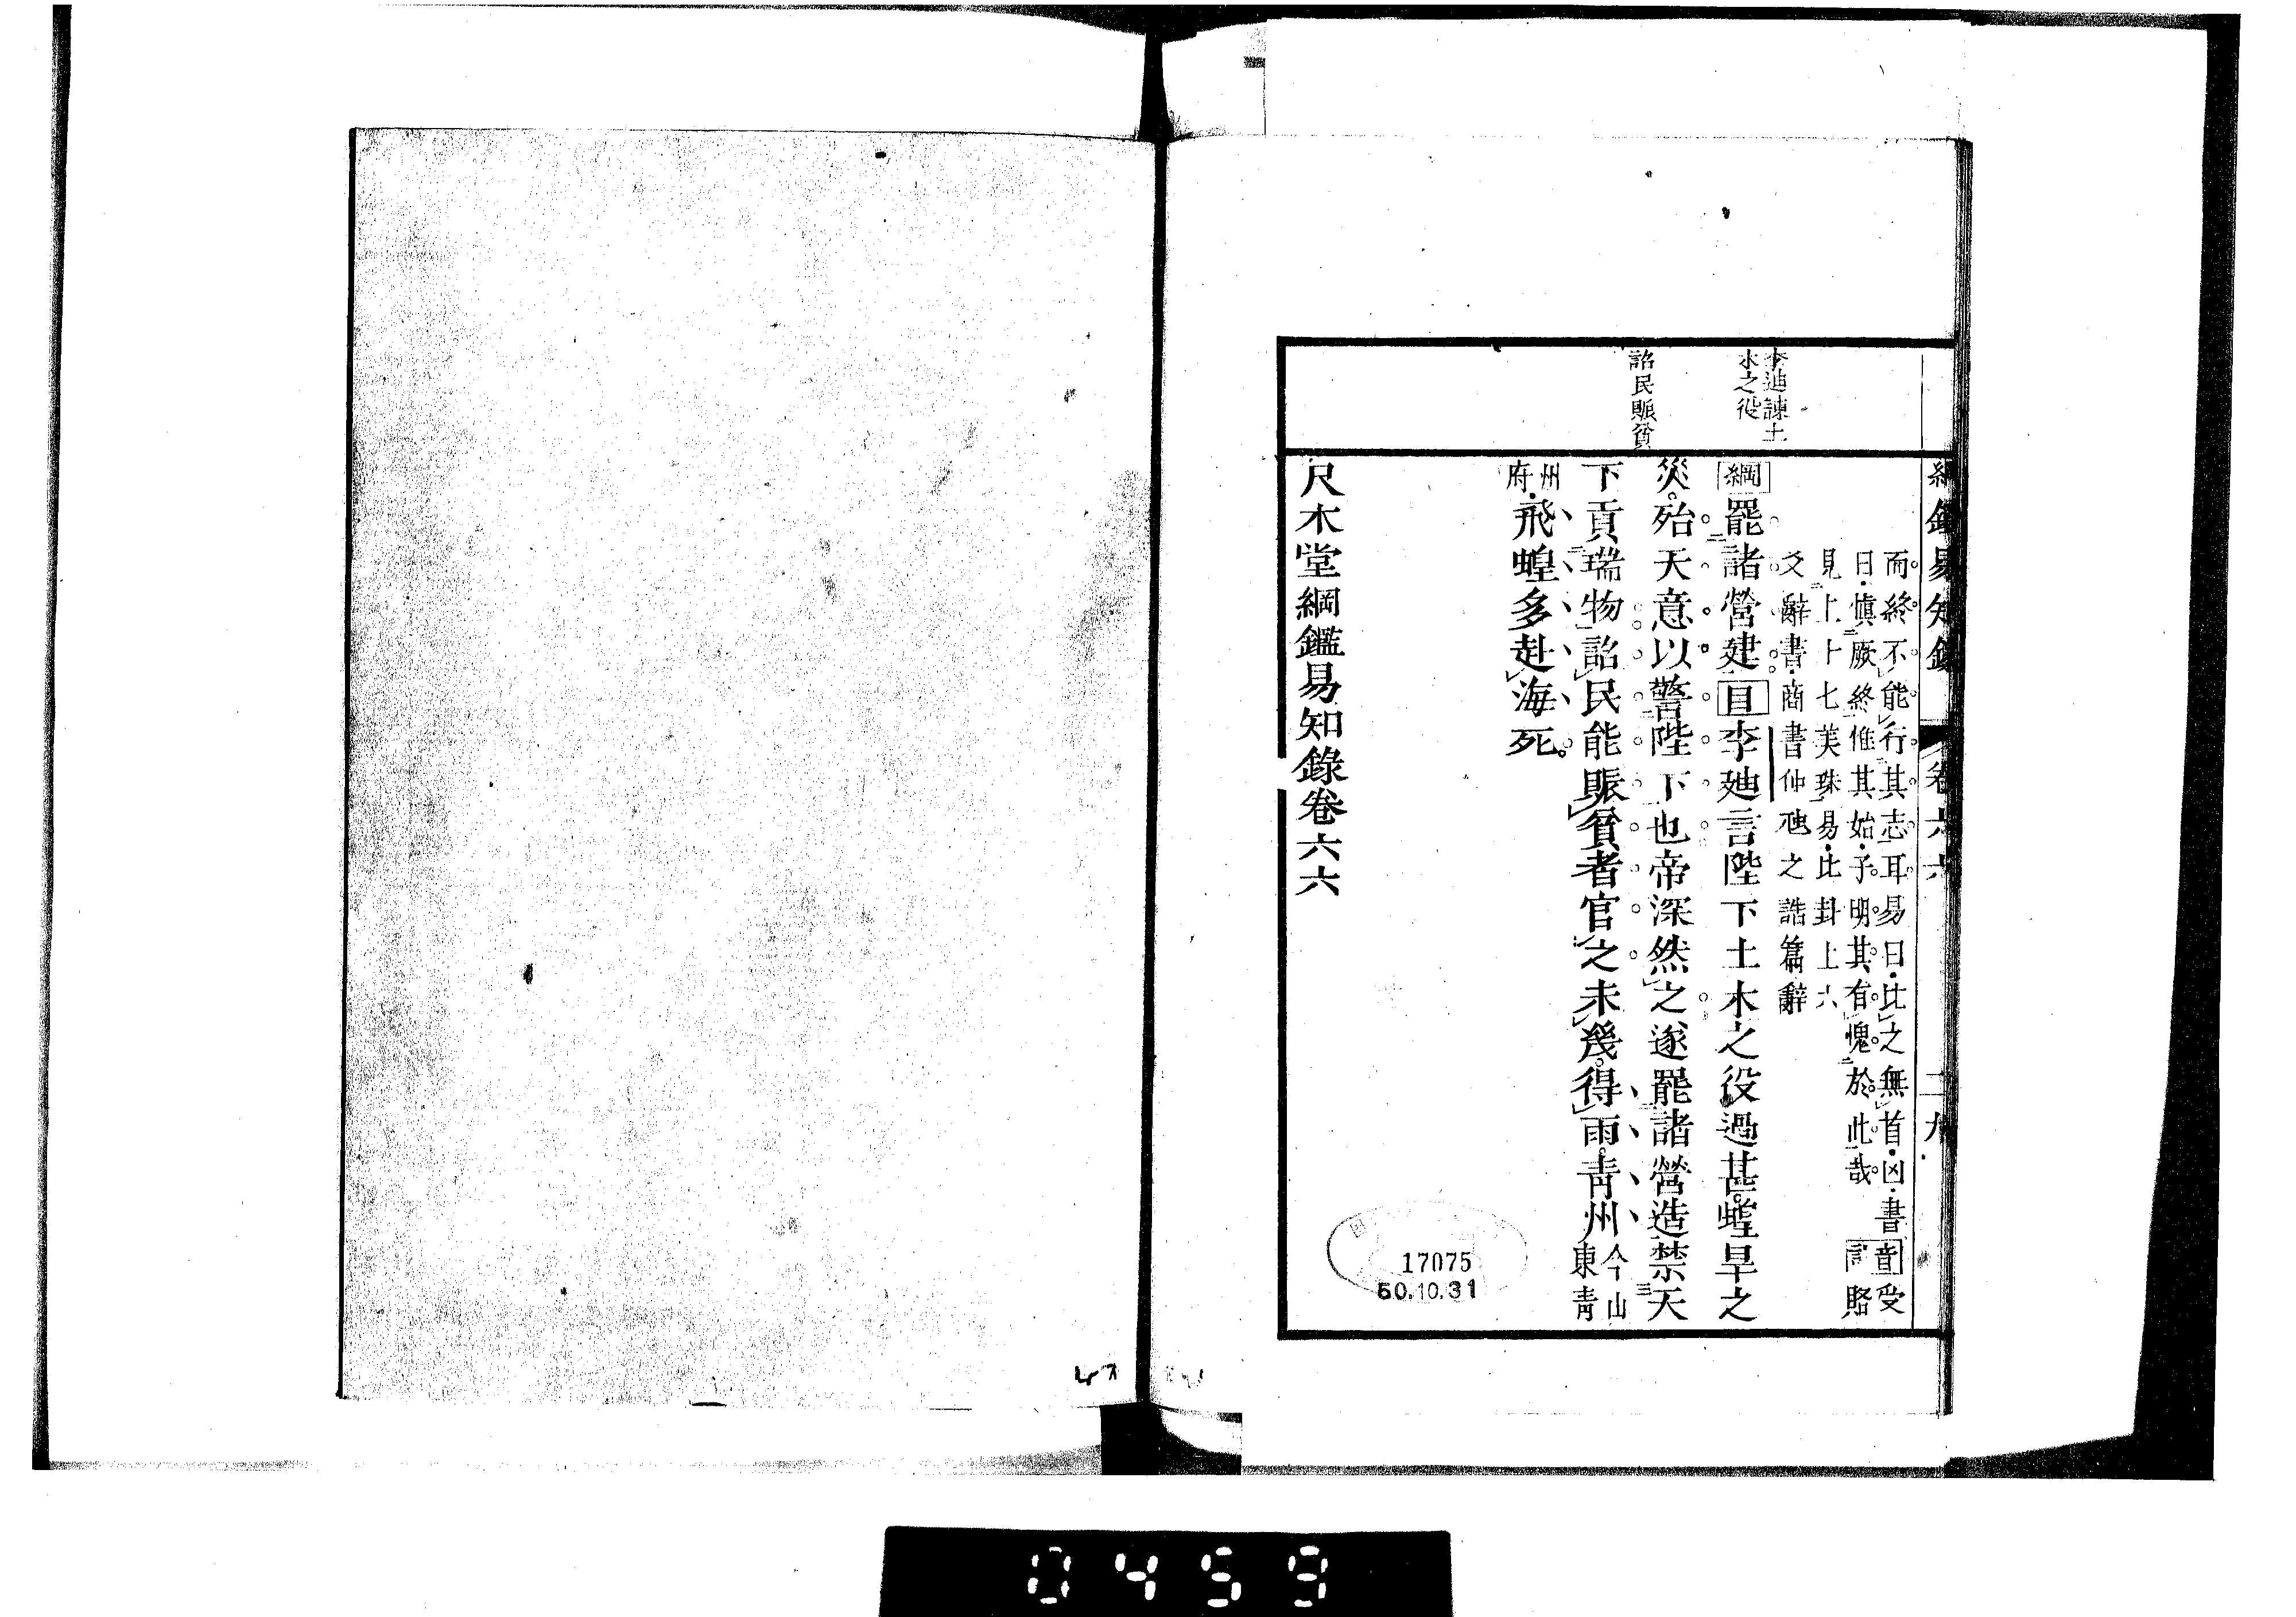 綱鑑易知錄 卷六六 二九
而終不能行其志耳易曰比之無首凶書音受
曰愼厥終惟其始予明其有愧於此哉言賂
見上十七美珠易比卦上六
爻辭書商書仲虺之誥篇辭
李迪諫土
木之役
綱罷諸營建目李迪言陛下土木之役過甚蝗旱之
災殆天意以警陛下也帝深然之遂罷諸營造禁天
詔民賑貧
下貢瑞物詔民能賑貧者官之未幾得雨靑州今山東靑
州府飛蝗多赴海死
尺木堂綱鑑易知錄卷六六
17075
50.10.31
0459